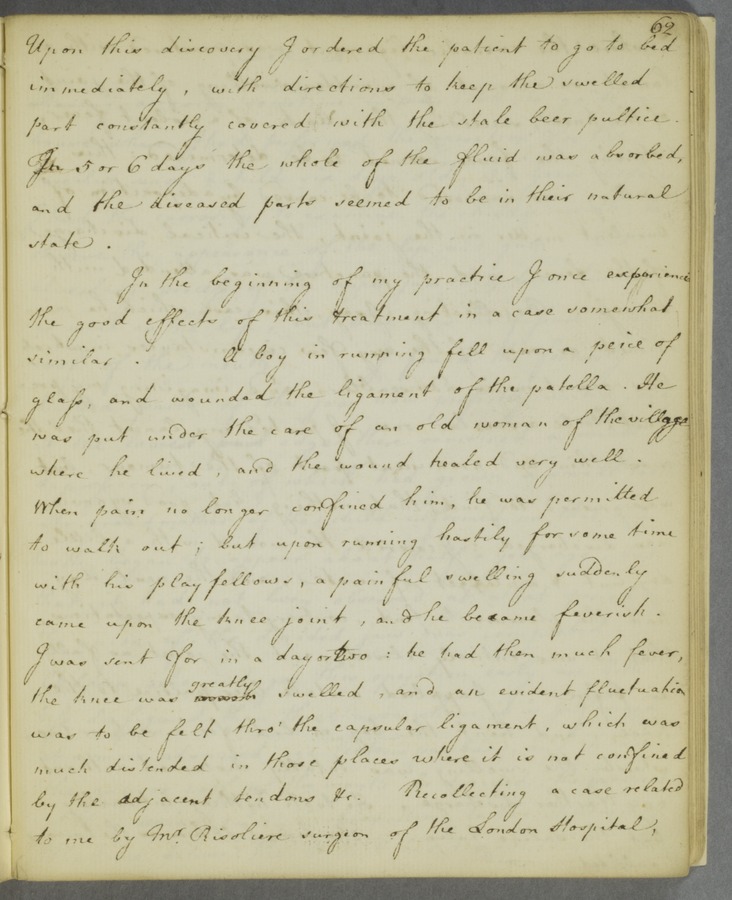 62
Upon this discovery I ordered the patient to go to bed
immediately, with directions to keep the swelled
part constantly covered with the stale beer pultice.
In 5 or 6 days the whole of the fluid was absorbed,
and the diseased parts seemed to be in their natural
state.
In the beginning of my practice I once experienc
the good effects of this treatment in a case somewhat
similar. A boy in running fell upon a peice of
glass, and wounded the ligament of the patella. He
was put under the care of an old woman of the village
where he lived, and the wound healed very well.
When pain no longer confined him, he was permitted
to walk out; but upon running hastily for some time
with his playfellows, a painful swelling suddenly
came upon the knee joint, and he became feverish.
I was sent for in a day or two: he had then much fever,
the knee was greatly swelled, and an evident fluctuation
was to be felt thro' the capsular ligament, which was
much distended in those places where it is not confined
by the adjacent tendons &c. Recollecting a case related
to me by Mr. Risoliere surgeon of the London Hospital,